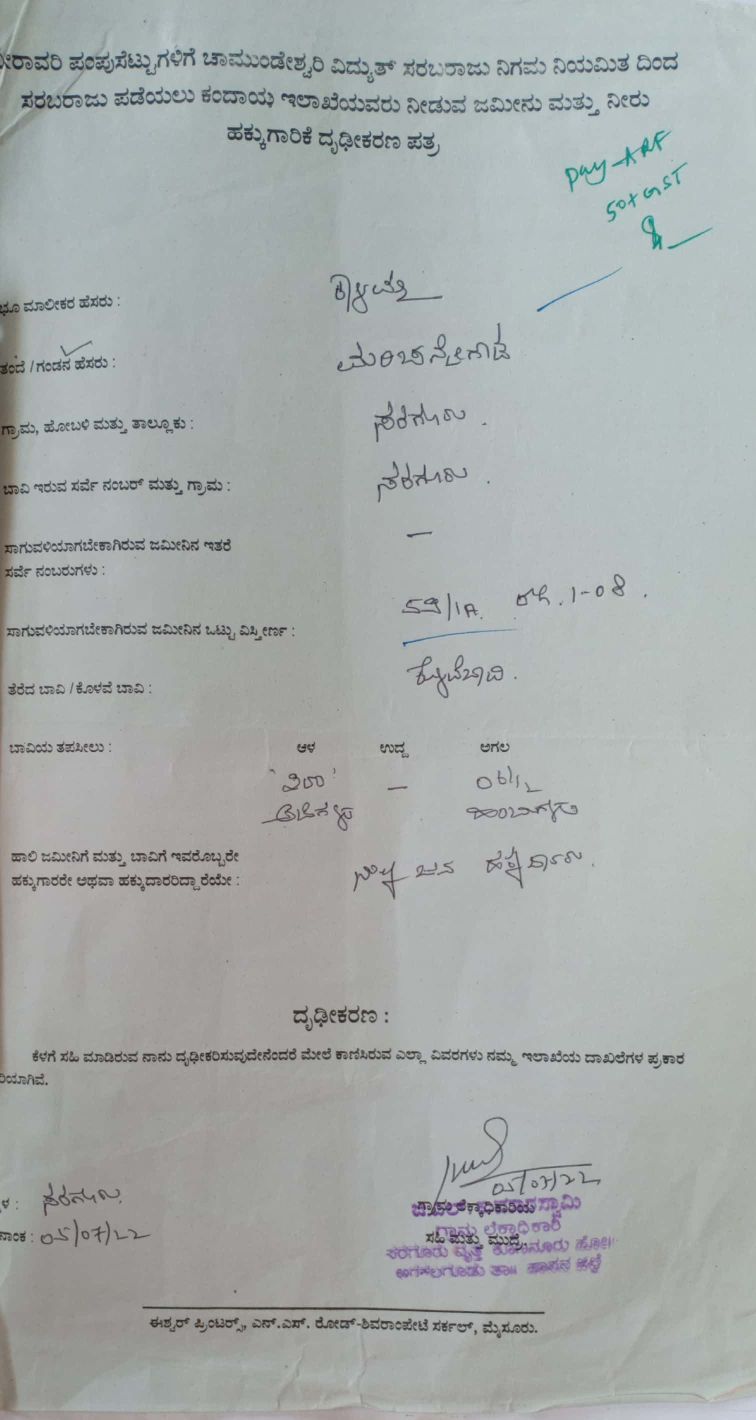 ೀರಾವರಿ ಪಂಪುಸೆಟ್ಟುಗಳಿಗೆ ಚಾಮುಂಡೇಶ್ವರಿ ವಿದ್ಯುತ್ ಸರಬರಾಜು ನಿಗಮ ನಿಯಮಿತ ದಿಂದ
ಸರಬರಾಜು ಪಡೆಯಲು ಕಂದಾಯ ಇಲಾಖೆಯವರು ನೀಡುವ ಜಮೀನು ಮತ್ತು ನೀರು
ಹಕ್ಕುಗಾರಿಕೆ ದೃಢೀಕರಣ ಪತ್ರ
Pay ARF
50+GST
ಭೂ ಮಾಲೀಕರ ಹೆಸರು :
ತಂದೆ / ಗಂಡನ ಹೆಸರು :
ಗ್ರಾಮ, ಹೋಬಳಿ ಮತ್ತು ತಾಲ್ಲೂಕು : ಸರಗೂರು .
ಬಾವಿ ಇರುವ ಸರ್ವೆ ನಂಬರ್ ಮತ್ತು ಗ್ರಾಮ : ಸರಗೂರು .
ಸಾಗುವಳಿಯಾಗಬೇಕಾಗಿರುವ ಜಮೀನಿನ ಇತರೆ —
ಸರ್ವೆ ನಂಬರುಗಳು :
ಸಾಗುವಳಿಯಾಗಬೇಕಾಗಿರುವ ಜಮೀನಿನ ಒಟ್ಟು ವಿಸ್ತೀರ್ಣ : 1-08 .
ತೆರೆದ ಬಾವಿ / ಕೊಳವೆ ಬಾವಿ : ಕೊಳವೆಬಾವಿ .
ಬಾವಿಯ ತಪಸೀಲು : ಆಳ ಉದ್ದ ಅಗಲ
—
ಹಾಲಿ ಜಮೀನಿಗೆ ಮತ್ತು ಬಾವಿಗೆ ಇವರೊಬ್ಬರೇ
ಹಕ್ಕುಗಾರರೇ ಅಥವಾ ಹಕ್ಕುದಾರರಿದ್ದಾರೆಯೇ :
ದೃಢೀಕರಣ :
ಕೆಳಗೆ ಸಹಿ ಮಾಡಿರುವ ನಾನು ದೃಢೀಕರಿಸುವುದೇನೆಂದರೆ ಮೇಲೆ ಕಾಣಿಸಿರುವ ಎಲ್ಲಾ ವಿವರಗಳು ನಮ್ಮ ಇಲಾಖೆಯ ದಾಖಲೆಗಳ ಪ್ರಕಾರ
ರಿಯಾಗಿವೆ.
05/07/22
ಗ್ರಾಮ ಲೆಕ್ಕಾಧಿಕಾರಿಯ
ಗ್ರಾಮ ಲೆಕ್ಕಾಧಿಕಾರಿ
ಸಹಿ ಮತ್ತು ಮುದ್ರೆ
ಸರಗೂರು ವೃತ್ತ ಕೊಣನೂರು ಹೋ||
ಅರಕಲಗೂಡು ತಾ|| ಹಾಸನ ಜಿಲ್ಲೆ
ಳ : ಸರಗೂರು.
ನಾಂಕ : 05/07/22
ಈಶ್ವರ್ ಪ್ರಿಂಟರ್ಸ್, ಎನ್.ಎಸ್. ರೋಡ್-ಶಿವರಾಂಪೇಟೆ ಸರ್ಕಲ್, ಮೈಸೂರು.